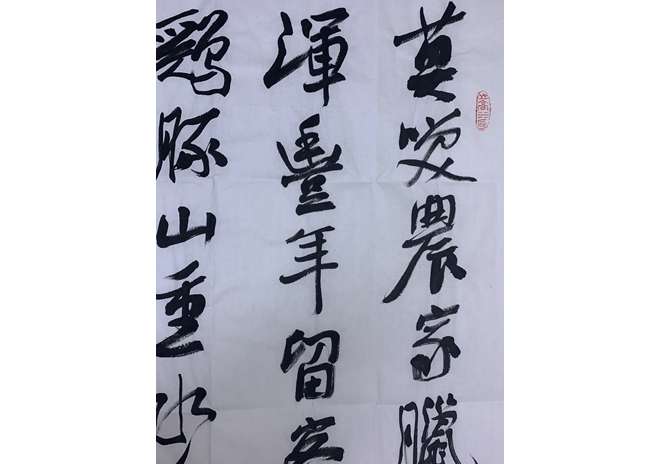 莫笑農家臘
渾豐年留客
鷄豚山重水